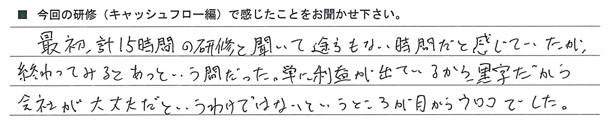 ■ 今回の研修（キャッシュフロー編）で感じたことをお聞かせ下さい。
最初、計15時間の研修と聞いて途方もない時間だと感じていたが、
終わってみるとあっという間だった。単に利益が出ているから黒字だから
会社が大丈夫だというわけではないというところが目からウロコでした。